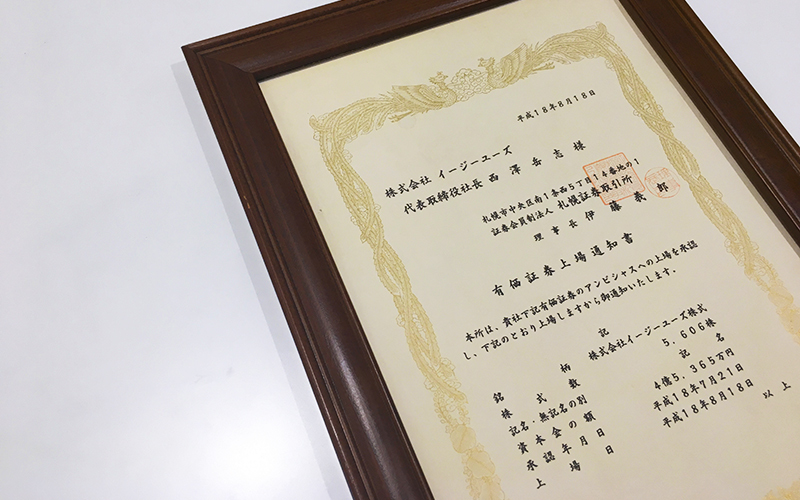 平成18年8月18日
株式会社 イージーユーズ
代表取締役社長 西澤岳志様
札幌市中央区南1条西5丁目14番地の1
証券会員制法人 札幌証券取引所
理事長 伊藤義郎
有価証券上場通知書
本所は、貴社下記有価証券のアンビシャスへの上場を承認
し、下記のとおり上場しますから御通知いたします。
記
銘柄 株式会社イージーユーズ株式
株式数 5,606株
記名・無記名の別 記名
資本金の額 4億5,365万円
承認年月日 平成18年7月21日
上場日 平成18年8月18日
以上